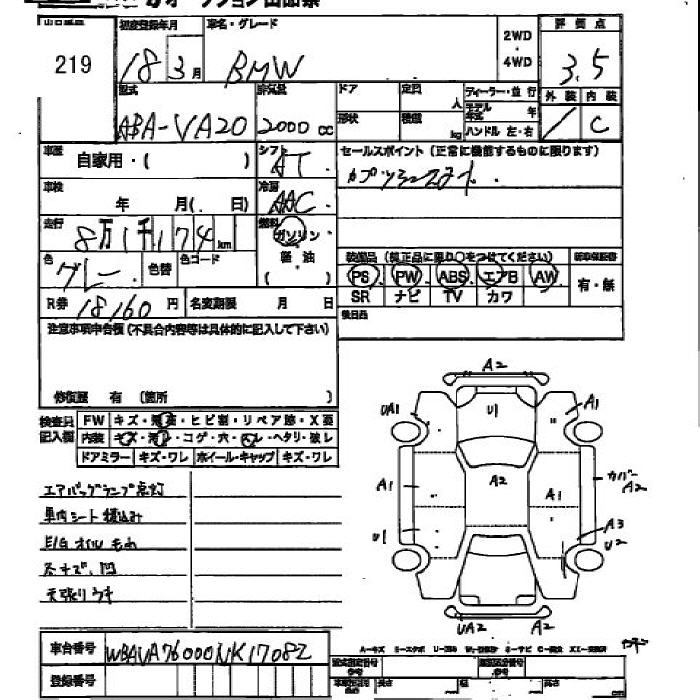 219
初度登録年月
車名・グレード
2WD
・
4WD
評価点
18 3月
BMW
3.5
型式
排気量
ドア
定員
人
ディーラー・並行
モデル年式 年
ハンドル 左・右
外装 内装
ABA-VA20
2000 cc
形状
積載
kg
/ C
車歴
自家用・( )
シフト
AT
セールスポイント(正常に機能するものに限ります)
車検
年 月(. 日)
冷房
AAC
走行
8万1千174km
燃料
ガソリン
軽油
( )
色
グレー
色替
色コード
装備品(純正品に限り○をつけてください)
PS PW ABS エアB AW
有・無
SR ナビ TV カワ
R券 18160 円
名変期限 月 日
後日品
注意事項申告欄(不具合内容等は具体的に記入して下さい)
修復歴 有 (箇所 )
検査員記入欄
FW キズ・飛石・ヒビ割・リペア跡・X要
内装 キズ・汚れ・コゲ・穴・スレ・ヘタリ・破レ
ドアミラー キズ・ワレ ホイール・キャップ キズ・ワレ
エアバッグランプ点灯
車内シート積込み
E/G オイルもれ
小キズ、凹
天張りウキ
A2
UA1
U1
A1
A1
A2
A1
カバー A2
U1
A3
U2
UA2
A2
車台番号 WBAVA76000NK17082
登録番号